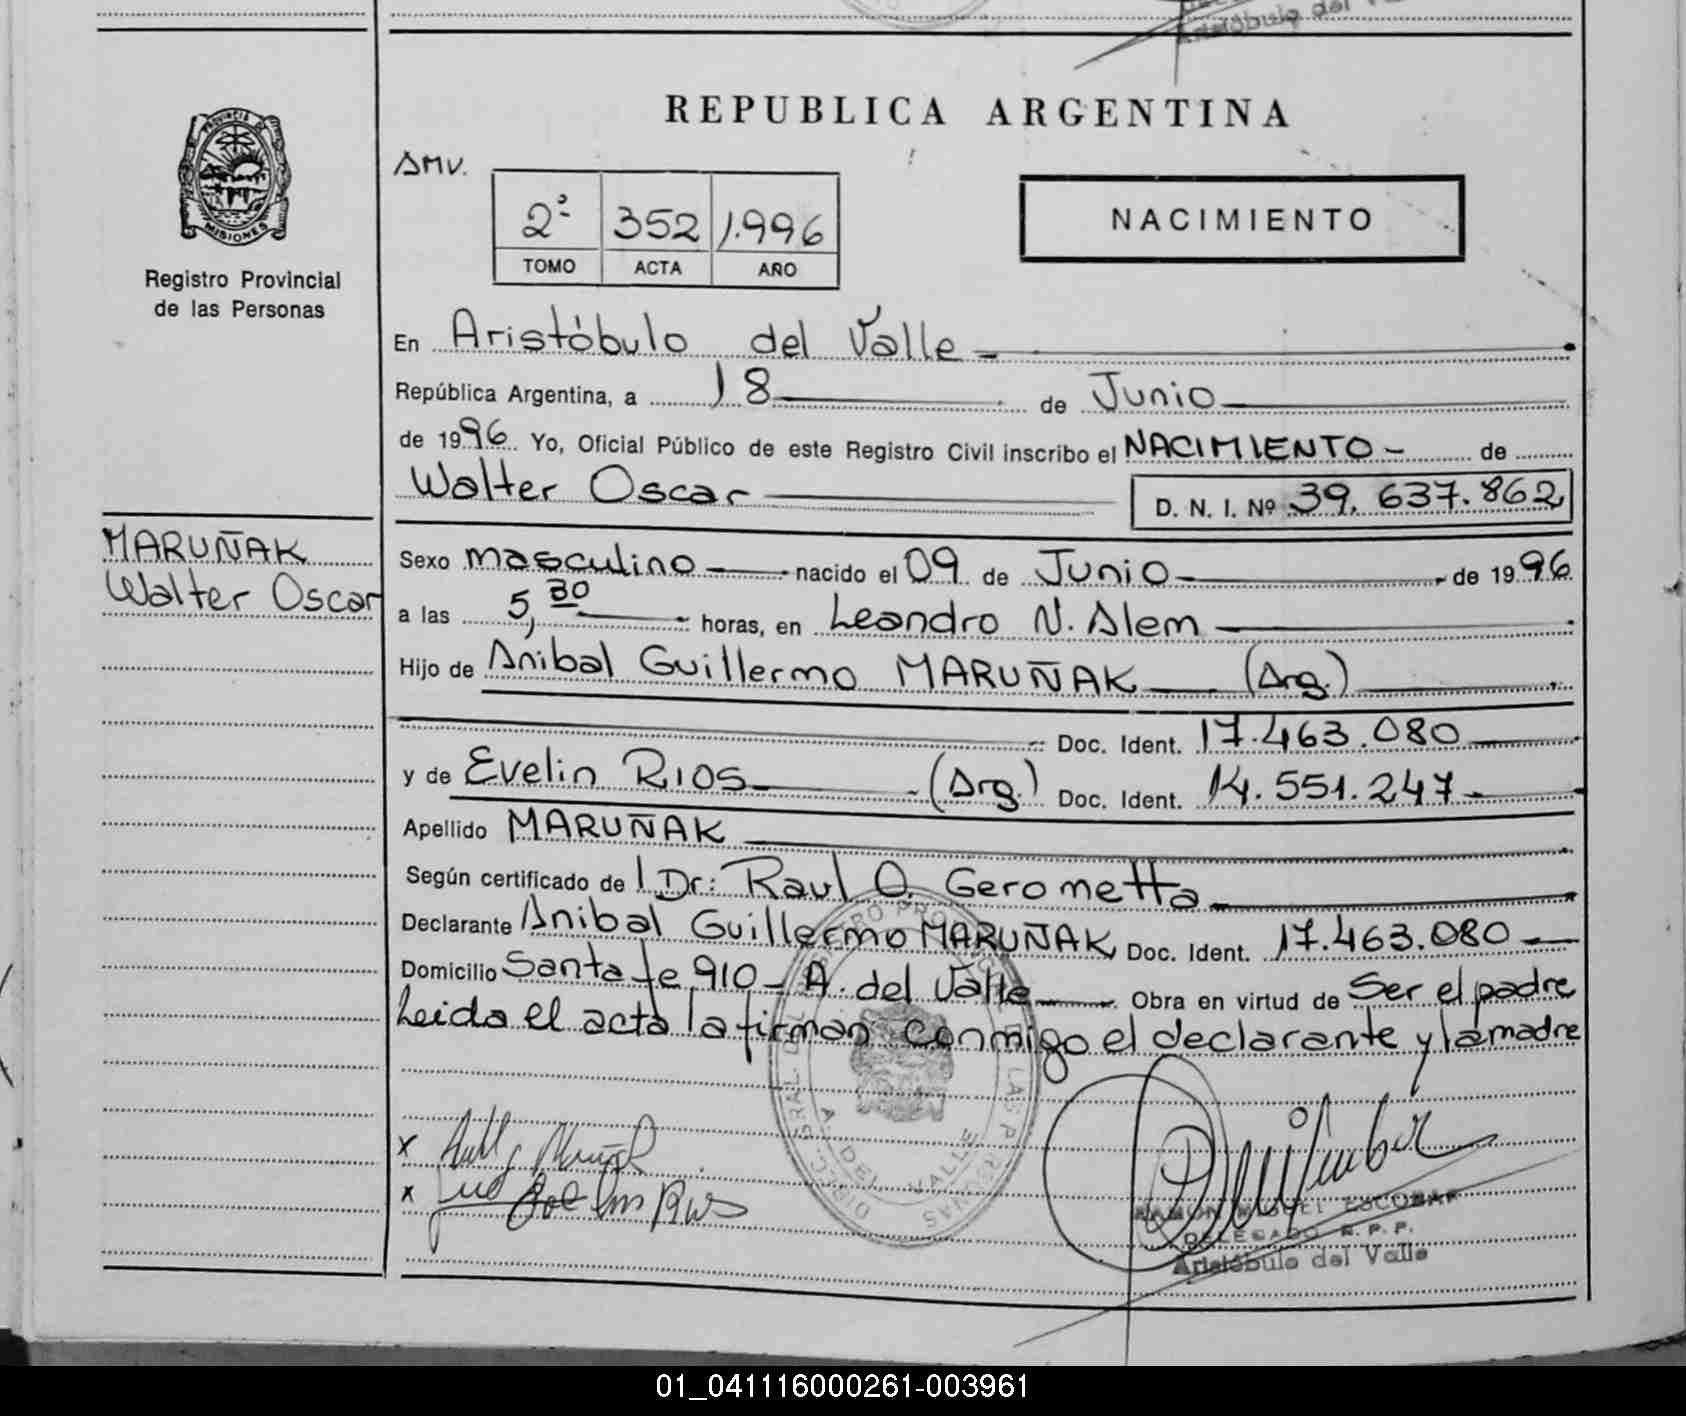 Aristóbulo del Valle
REPUBLICA ARGENTINA
PROVINCIA DE
MISIONES
Registro Provincial
de las Personas
AMV.
2º 352 1.996
TOMO ACTA AÑO
NACIMIENTO
En Aristóbulo del Valle
República Argentina, a 18 de Junio
de 1996 Yo, Oficial Público de este Registro Civil inscribo el NACIMIENTO de
Walter Oscar D. N. I. Nº 39.637.862
MARUÑAK
Walter Oscar
Sexo masculino nacido el 09 de Junio de 1996
a las 5,30 horas, en Leandro N. Alem
Hijo de Anibal Guillermo MARUÑAK (Arg.)
Doc. Ident. 17.463.080
y de Evelin RIOS (Arg.) Doc. Ident. 14.551.247
Apellido MARUÑAK
Según certificado de Dr: Raul O. Gerometta
Declarante Anibal Guillermo MARUÑAK Doc. Ident. 17.463.080
Domicilio Santa fe 910 - A. del Valle Obra en virtud de Ser el padre
Leida el acta la firman conmigo el declarante y la madre
x
x
A. DEL VALLE
RAMON MIGUEL ESCOBAR
DELEGADO R.P.P.
Aristóbulo del Valle
01_041116000261-003961